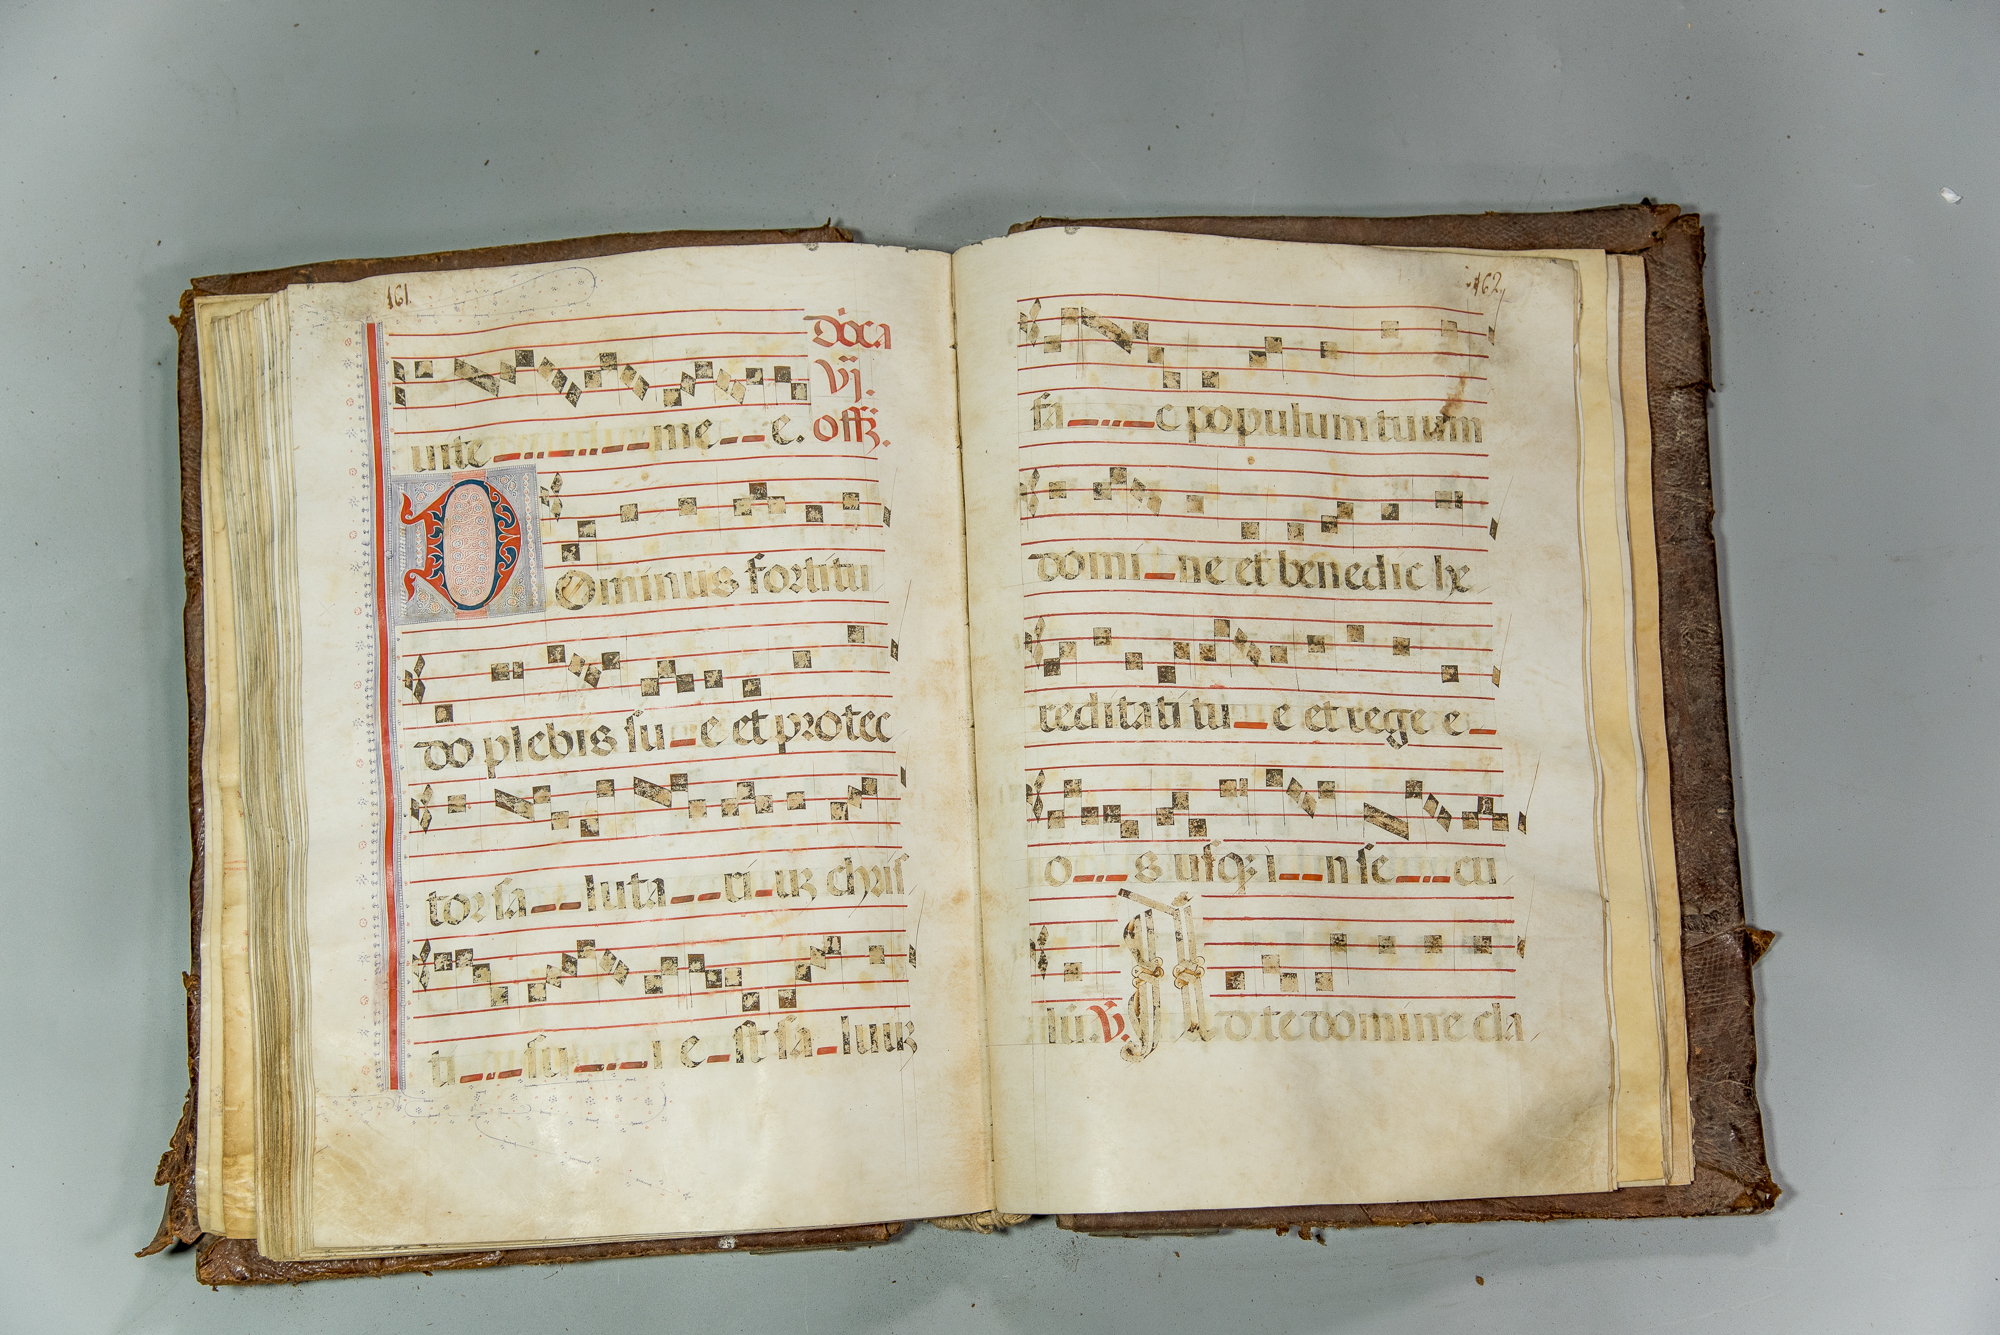 161
Dõca
vij.
unte me e. offz.
Dominus fortitu
do plebis su e et protec
tor sa luta ri uz chris
ti su i e st sa luuz
162
fa c populum tuum
domi ne et benedic he
reditati tu e et rege e
o s usqz i n se cu
lũ. V. Ad te domine cla